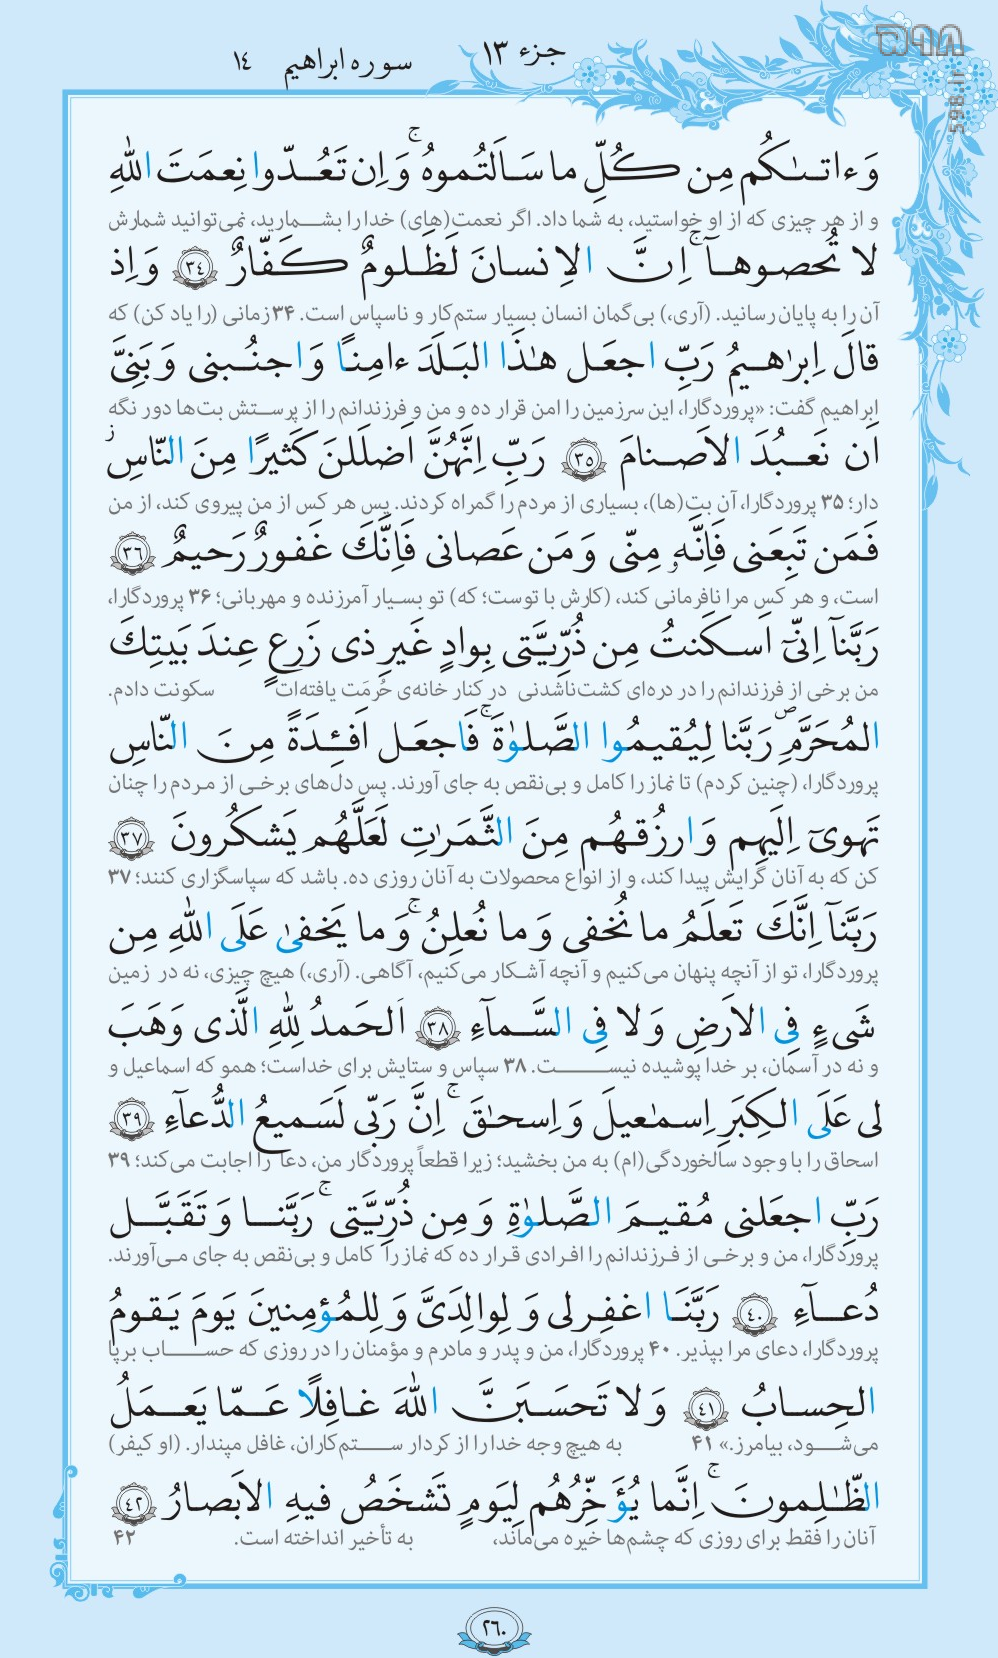 جزء ١٣
سوره ابراهیم ١٤
۵۹۸
598.ir
وَ ءاتىٰكُم مِن كُلِّ ما سَاَلتُموهُ ۚ وَ اِن تَعُدّوا نِعمَتَ اللهِ
و از هر چیزی که از او خواستید، به شما داد. اگر نعمت(های) خدا را بشمارید، نمی‌توانید شمارش
لا تُحصوها ۚ اِنَّ الاِنسانَ لَظَلومٌ كَفّارٌ ﴿٣٤﴾ وَ اِذ
آن را به پایان رسانید. (آری،) بی‌گمان انسان بسیار ستم‌کار و ناسپاس است. ۳۴ زمانی (را یاد کن) که
قالَ اِبرٰهیمُ رَبِّ اجعَل هٰذَا البَلَدَ ءامِنًا وَ اجنُبنی وَ بَنِیَّ
ابراهیم گفت: «پروردگارا، این سرزمین را امن قرار ده و من و فرزندانم را از پرستش بت‌ها دور نگه
اَن نَعبُدَ الاَصنامَ ﴿٣٥﴾ رَبِّ اِنَّهُنَّ اَضلَلنَ كَثیرًا مِنَ النّاسِ ۖ
دار؛ ۳۵ پروردگارا، آن بت(ها)، بسیاری از مردم را گمراه کردند. پس هر کس از من پیروی کند، از من
فَمَن تَبِعَنی فَاِنَّهٗ مِنّی وَ مَن عَصانی فَاِنَّكَ غَفورٌ رَحیمٌ ﴿٣٦﴾
است، و هر کس مرا نافرمانی کند، (کارش با توست؛ که) تو بسیار آمرزنده و مهربانی؛ ۳۶ پروردگارا،
رَبَّنآ اِنّیٓ اَسكَنتُ مِن ذُرِّیَّتی بِوادٍ غَیرِ ذی زَرعٍ عِندَ بَیتِكَ
من برخی از فرزندانم را در دره‌ای کشت‌ناشدنی در کنار خانه‌ی حُرمَت یافته‌ات سکونت دادم.
المُحَرَّمِ رَبَّنا لِیُقیمُوا الصَّلوٰةَ ۚ فَاجعَل اَفـِٔدَةً مِنَ النّاسِ
پروردگارا، (چنین کردم) تا نماز را کامل و بی‌نقص به جای آورند. پس دل‌های برخی از مردم را چنان
تَهویٓ اِلَیهِم وَ ارزُقهُم مِنَ الثَّمَرٰتِ لَعَلَّهُم یَشكُرونَ ﴿٣٧﴾
کن که به آنان گرایش پیدا کند، و از انواع محصولات به آنان روزی ده. باشد که سپاسگزاری کنند؛ ۳۷
رَبَّنآ اِنَّكَ تَعلَمُ ما نُخفی وَ ما نُعلِنُ ۚ وَ ما یَخفیٰ عَلَی اللهِ مِن
پروردگارا، تو از آنچه پنهان می‌کنیم و آنچه آشکار می‌کنیم، آگاهی. (آری،) هیچ چیزی، نه در زمین
شَیءٍ فِی الاَرضِ وَ لا فِی السَّمآءِ ﴿٣٨﴾ اَلحَمدُ لِلّٰهِ الَّذی وَهَبَ
و نه در آسمان، بر خدا پوشیده نیست. ۳۸ سپاس و ستایش برای خداست؛ همو که اسماعیل و
لی عَلَی الكِبَرِ اِسمٰعیلَ وَ اِسحٰقَ ۚ اِنَّ رَبّی لَسَمیعُ الدُّعآءِ ﴿٣٩﴾
اسحاق را با وجود سالخوردگی(ام) به من بخشید؛ زیرا قطعاً پروردگار من، دعا را اجابت می‌کند؛ ۳۹
رَبِّ اجعَلنی مُقیمَ الصَّلوٰةِ وَ مِن ذُرِّیَّتی ۚ رَبَّنا وَ تَقَبَّل
پروردگارا، من و برخی از فرزندانم را افرادی قرار ده که نماز را کامل و بی‌نقص به جای می‌آورند.
دُعآءِ ﴿٤٠﴾ رَبَّنَا اغفِرلی وَ لِوالِدَیَّ وَ لِلمُؤمِنینَ یَومَ یَقومُ
پروردگارا، دعای مرا بپذیر. ۴۰ پروردگارا، من و پدر و مادرم و مؤمنان را در روزی که حساب برپا
الحِسابُ ﴿٤١﴾ وَ لا تَحسَبَنَّ اللهَ غافِلًا عَمّا یَعمَلُ
می‌شود، بیامرز.» ۴۱ به هیچ وجه خدا را از کردار ستم‌کاران، غافل مپندار. (او کیفر)
الظّٰلِمونَ ۚ اِنَّما یُؤَخِّرُهُم لِیَومٍ تَشخَصُ فیهِ الاَبصارُ ﴿٤٢﴾
آنان را فقط برای روزی که چشم‌ها خیره می‌ماند، به تأخیر انداخته است. ۴۲
٢٦٠